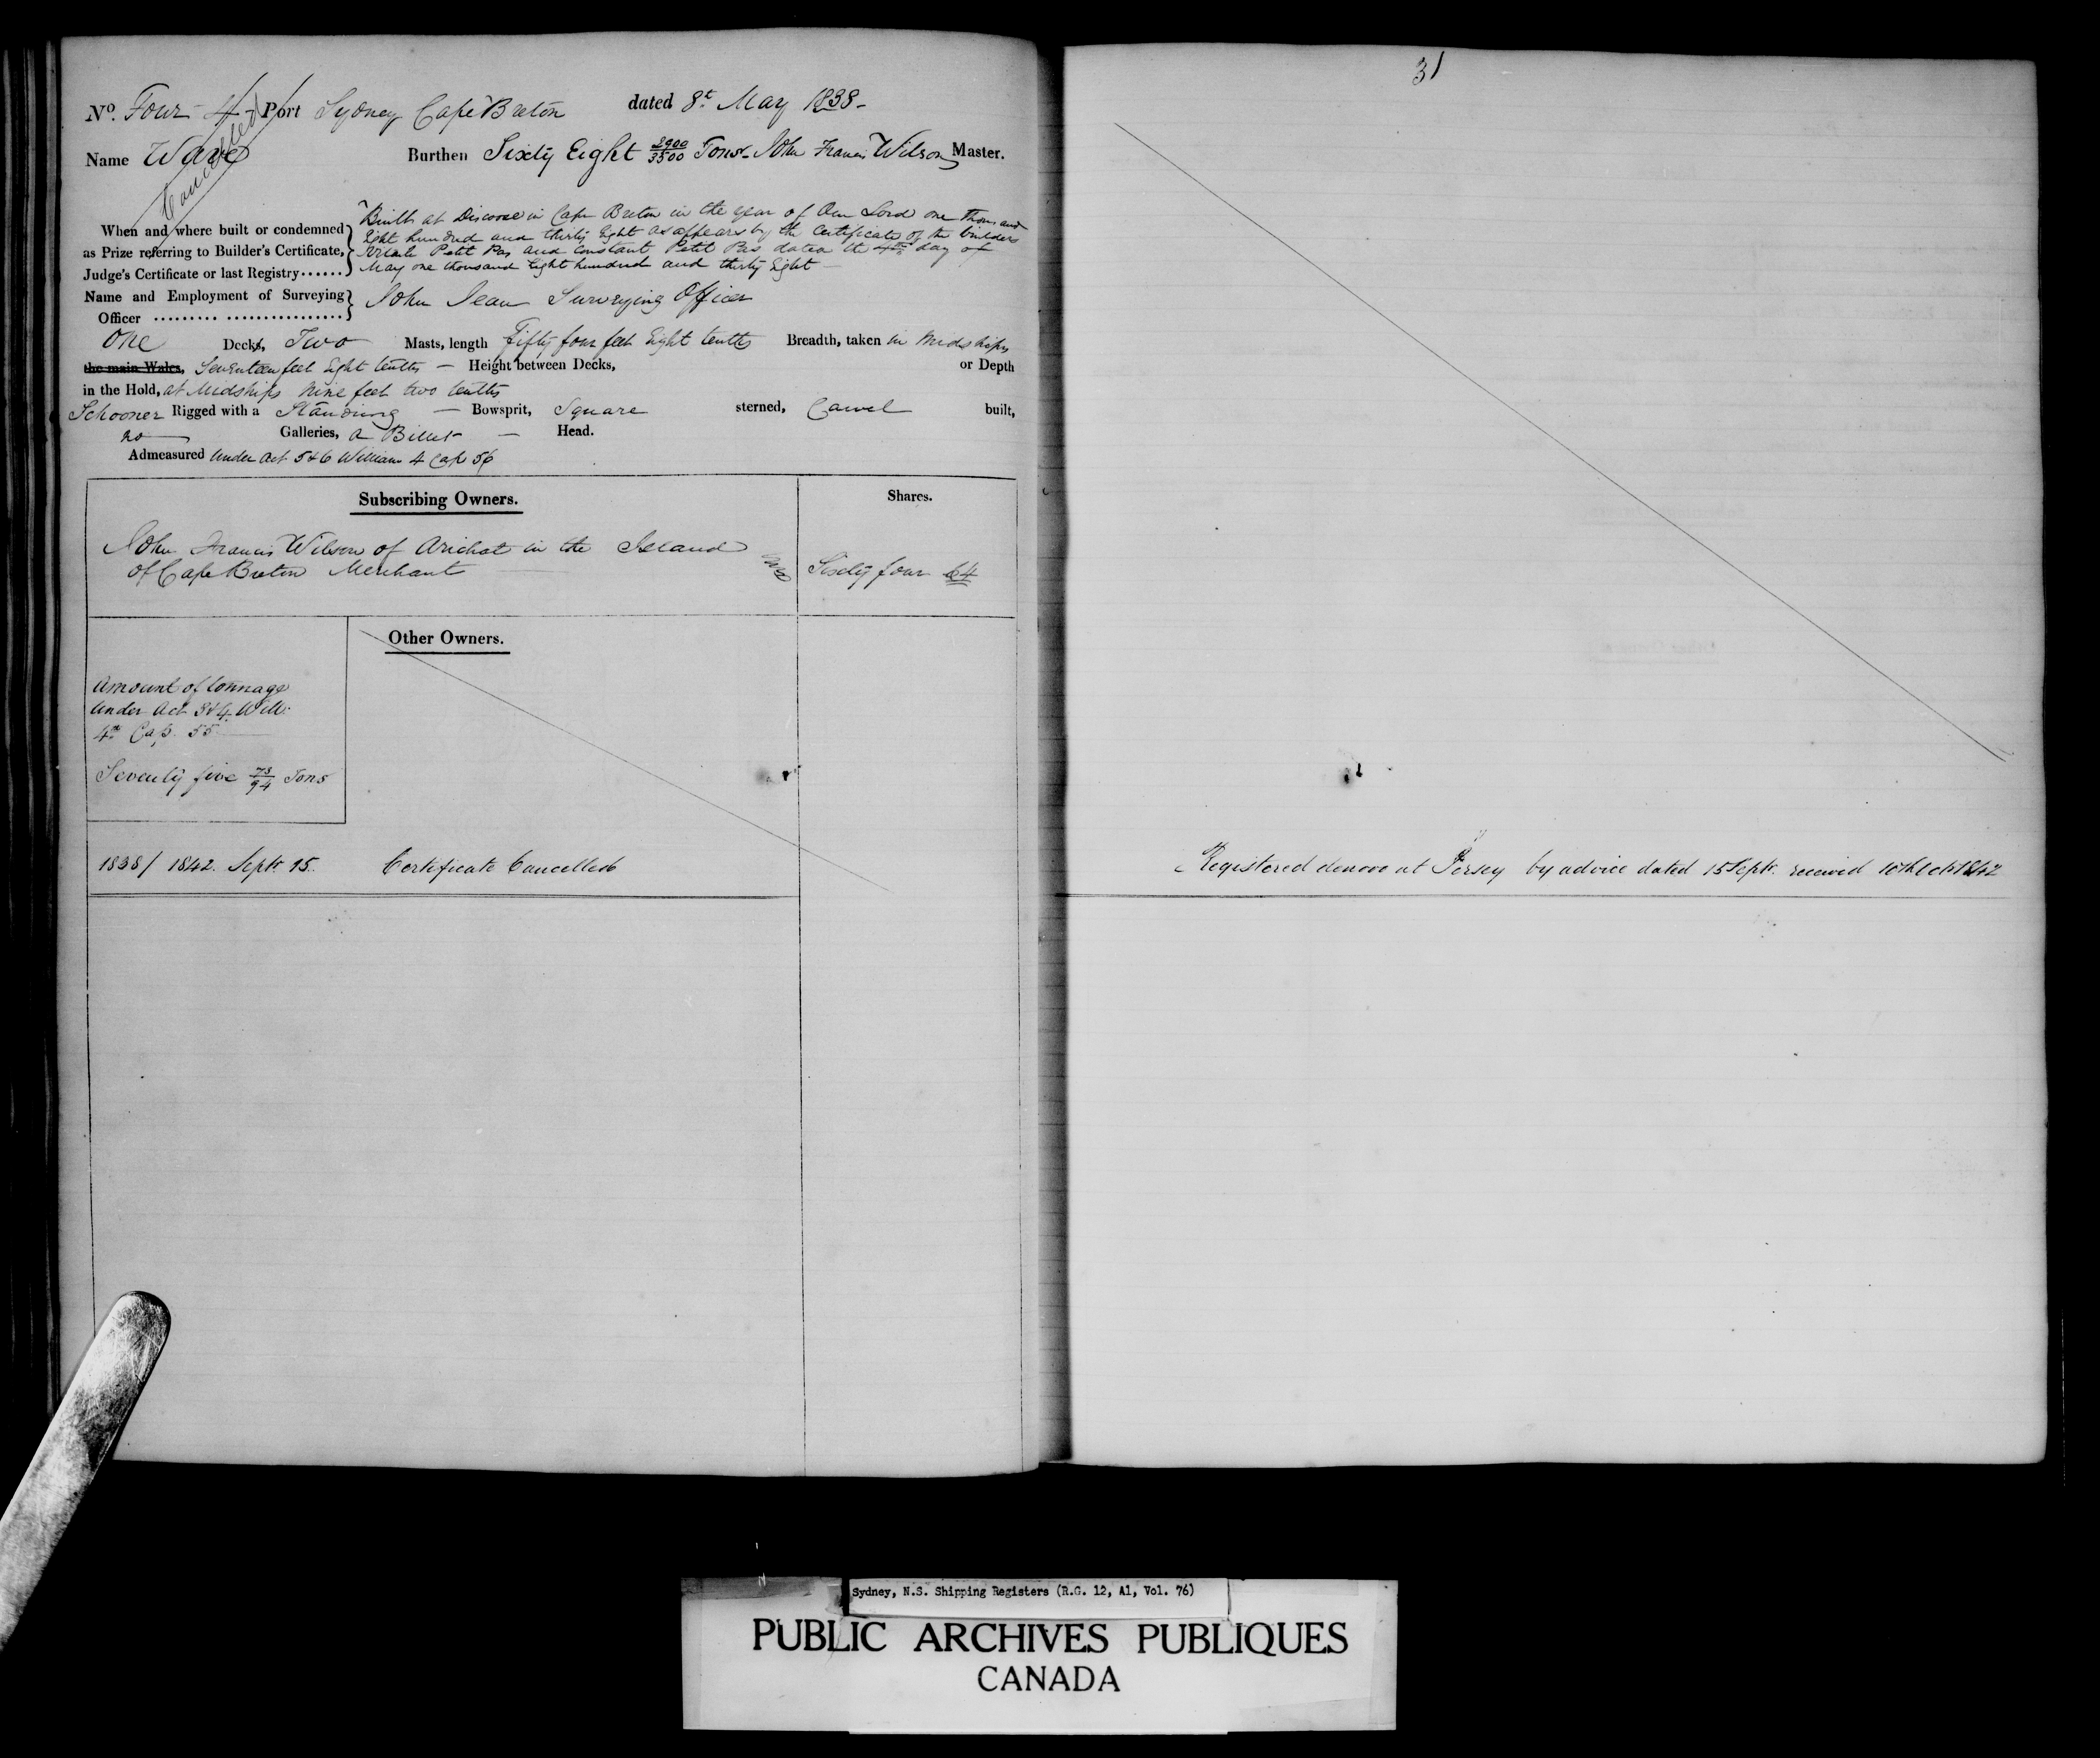 No. Four 4 Port Sydney Cape Breton dated 8t May 1838
Cancelled
Name Wave Burthen Sixty Eight 2900/3500 Tons John Francis Wilson Master.
When and where built or condemned
as Prize referring to Builder's Certificate,
Judge's Certificate or last Registry......
Built at Discosse in Cape Breton in the year of Our Lord one thousand
Eight hundred and thirty Eight as appears by the Certificate of the builders
Petit Pas and Constant Petit Pas dated the 4th day of
May one thousand Eight hundred and thirty Eight
Name and Employment of Surveying
Officer
John Jean Surveying Officer
One Decks, Two Masts, length Fifty four feet Eight tenths Breadth, taken in Midships
the main Wales, Seventeen feet Eight tenths Height between Decks, or Depth
in the Hold, at Midships Nine feet two tenths
Schooner Rigged with a Standing Bowsprit, Square sterned, Carvel built,
no Galleries, a Billet Head.
Admeasured Under Act 5 & 6 William 4 Cap 56
Subscribing Owners. Shares.
John Francis Wilson of Arichat in the Island
of Cape Breton Merchant
Sixty four 64
Other Owners.
Amount of tonnage
Under Act 3 & 4 Will:
4th Cap. 55
Seventy five 73/94 Tons
1838/ 1842. Sept. 15. Certificate Cancelled
31
Registered denovo at Jersey by advice dated 15 Sept. received 10th Oct 1842
Sydney, N.S. Shipping Registers (R.G. 12, A1, Vol. 76)
PUBLIC ARCHIVES PUBLIQUES
CANADA